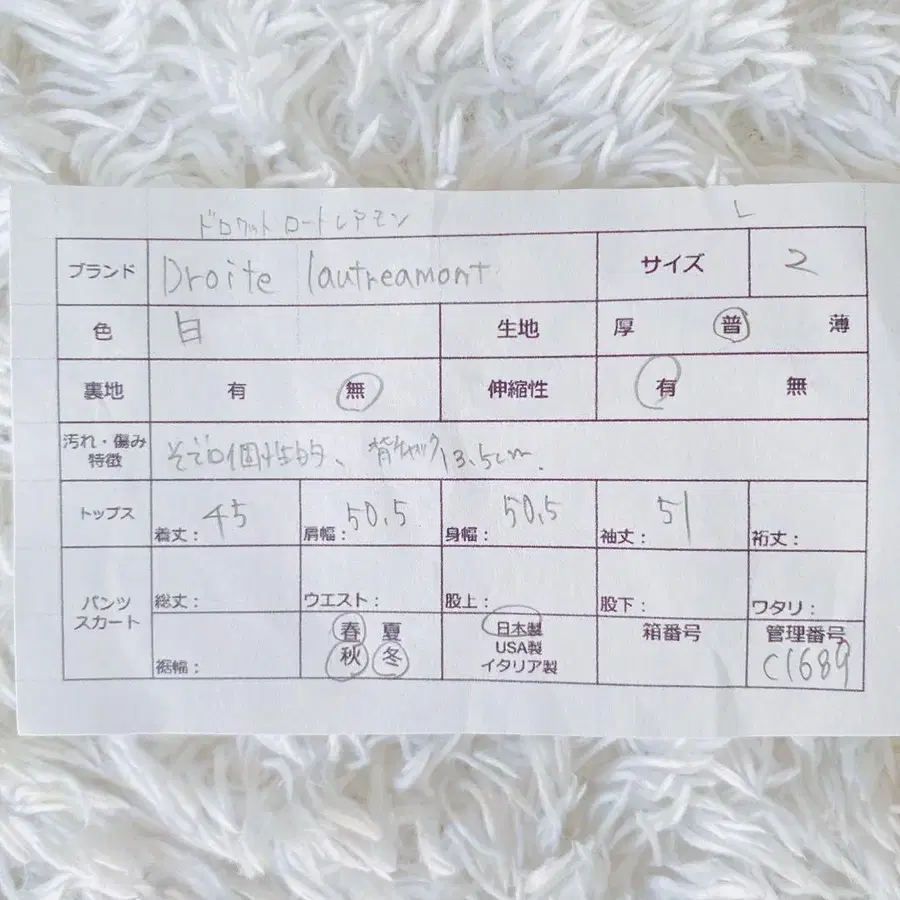 ドロワット ロートレアモン L
ブランド Droite lautreamont サイズ 2
色 白 生地 厚 普 薄
裏地 有 無 伸縮性 有 無
汚れ・傷み
特徴 そで口個性的、背チャック13.5cm.
トップス 着丈: 45 肩幅: 50.5 身幅: 50.5 袖丈: 51 裄丈:
パンツ
スカート 総丈: ウエスト: 股上: 股下: ワタリ:
裾幅: 春 夏
秋 冬
日本製
USA製
イタリア製
箱番号 管理番号
C1689